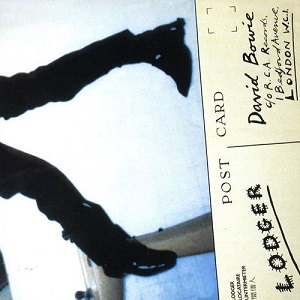 POST CARD
David Bowie
c/o R.C.A. Records,
1 Bedford Avenue,
LONDON W.C.1.
LODGER
LODGER
LOCATAIRE
UNTERMIETER
間借人